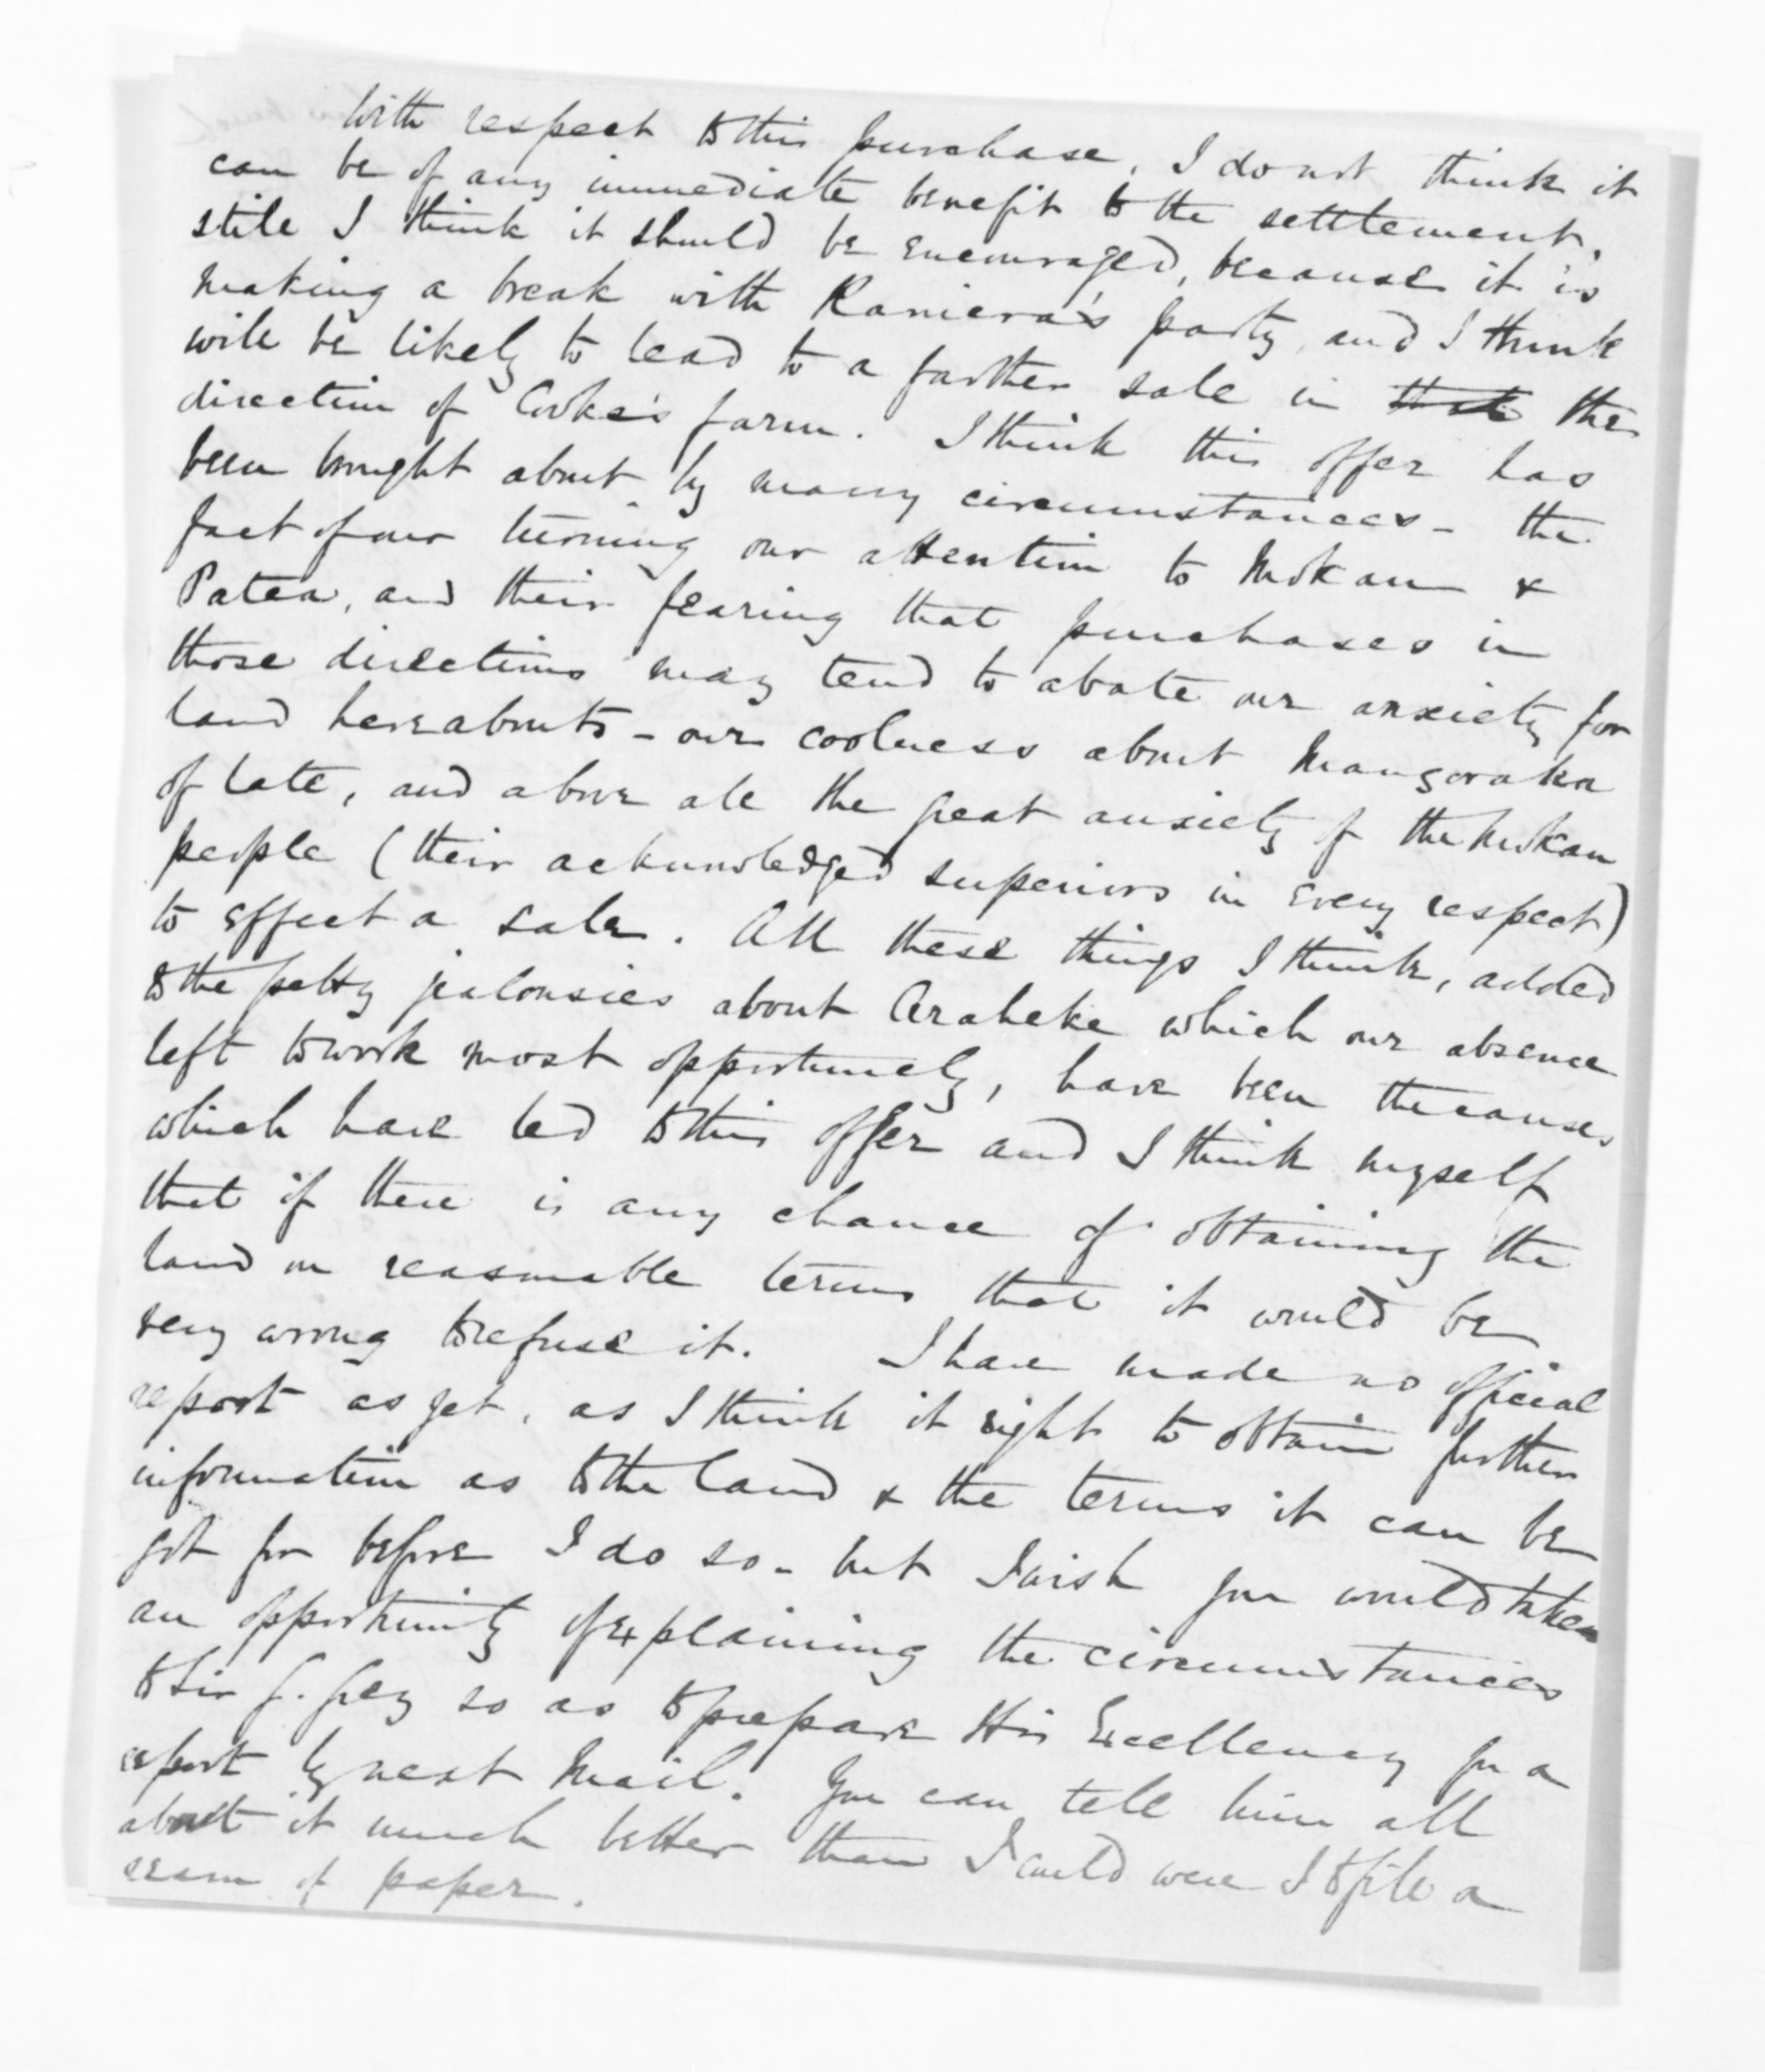 With respect to this purchase, I do not think it
can be of any immediate benefit to the settlement,
still I think it should be encouraged, because it is
making a break with Raniera's party, and I think
will be likely to lead to a farther sale in the
direction of Cooke's farm. I think this offer has
been brought about by many circumstances - the
fact of our turning our attention to Mokau &
Patea, and their fearing that purchases in
those directions may tend to abate our anxiety for
land hereabouts - our coolness about Mangoraka
of late, and above all the great anxiety of the Mokau
people (their acknowledged superiors in every respect)
to effect a sale. All these things I think, added
to the petty jealousies about Araheke which our absence
left to work most opportunely, have been the causes
which have led to this offer and I think myself
that if there is any chance of obtaining the
land on reasonable terms that it would be
very wrong to refuse it. I have made no official
report as yet, as I think it right to obtain further
information as to the land & the terms it can be
got for before I do so - but I wish you would take
an opportunity of explaining the circumstances
to Sir G. Grey so as to prepare His Excellency for a
report by next Mail. You can tell him all
about it much better than I could were I to file a
ream of paper.